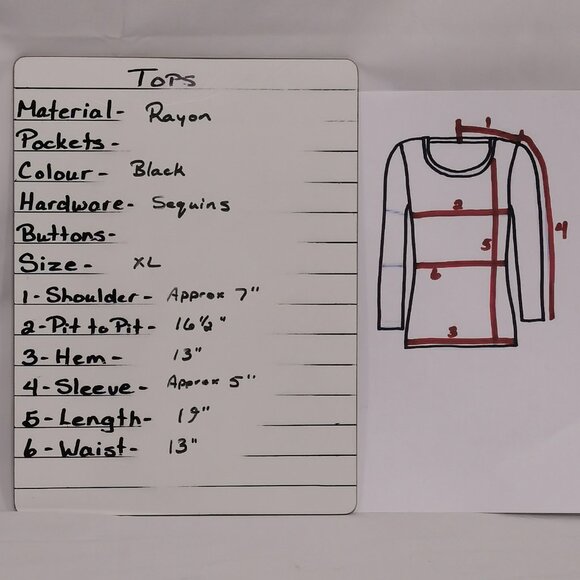 Tops
Material- Rayon
Pockets-
Colour- Black
Hardware- Sequins
Buttons-
Size- XL
1-Shoulder- Approx 7"
2-Pit to Pit- 16½"
3-Hem- 13"
4-Sleeve- Approx 5"
5-Length- 19"
6-Waist- 13"
1
2
4
5
6
3